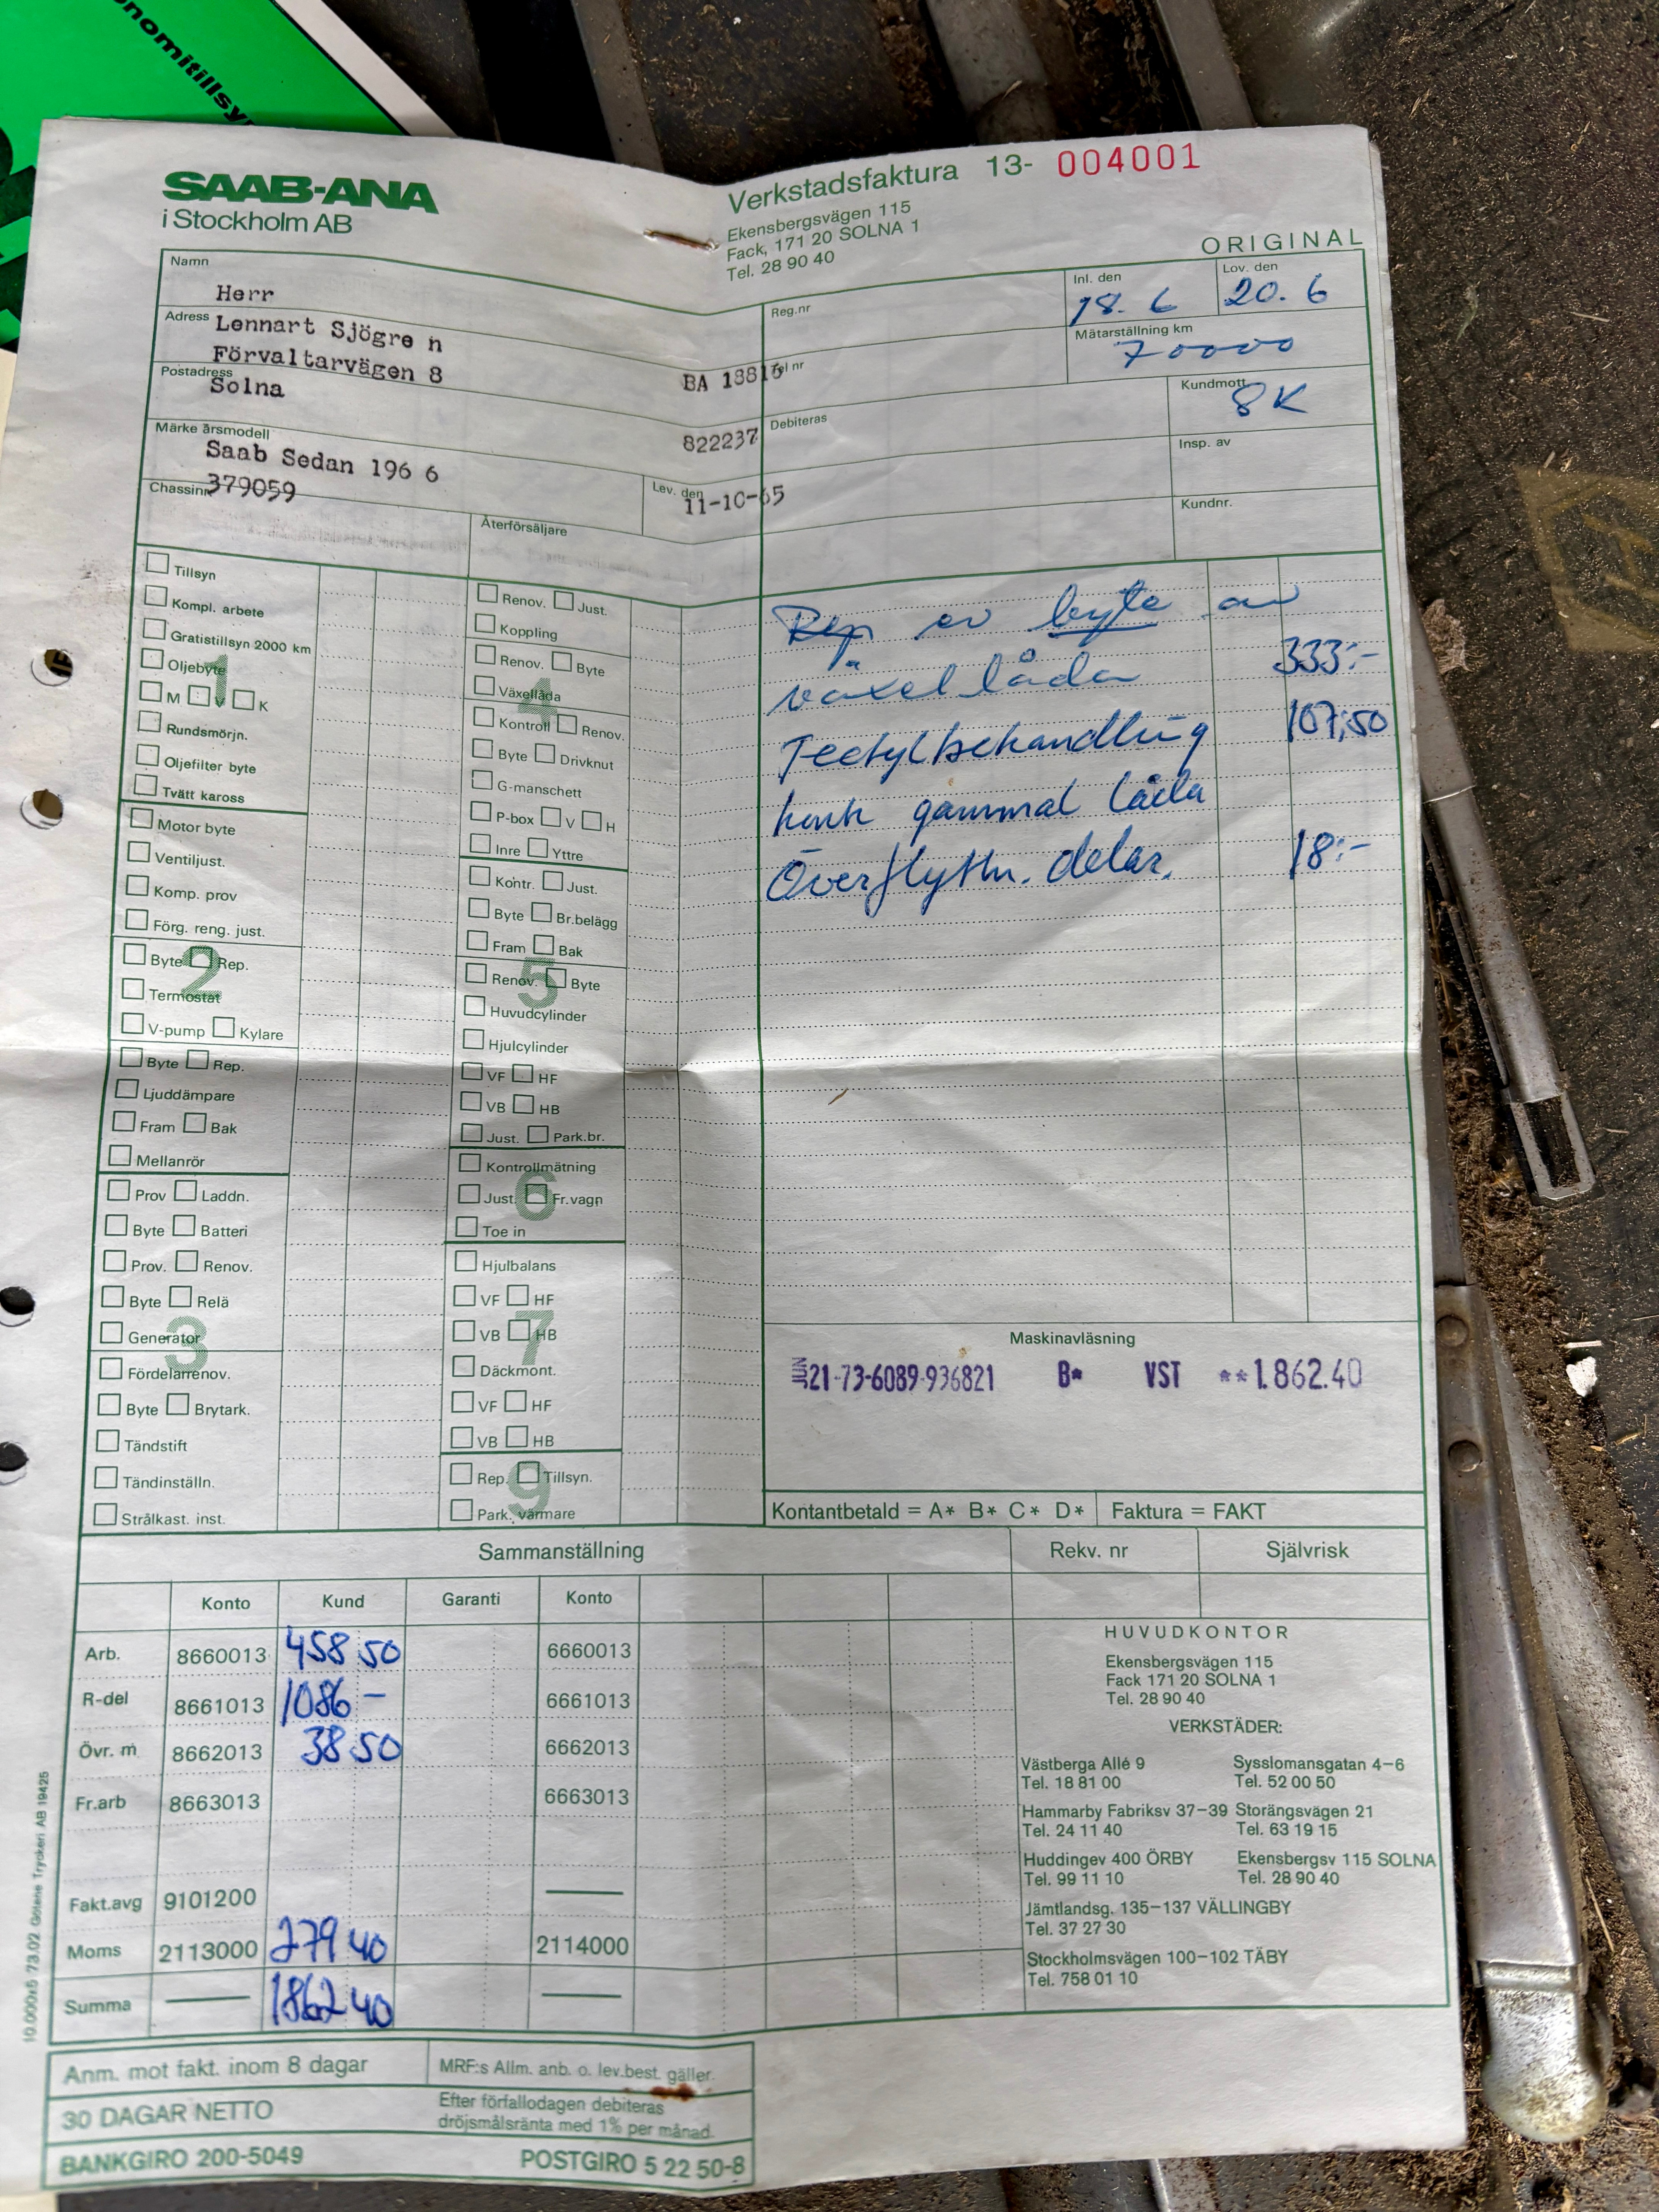 onomitillsy
SAAB-ANA
i Stockholm AB
Verkstadsfaktura 13- 004001
Ekensbergsvägen 115
Fack, 171 20 SOLNA 1
Tel. 28 90 40
ORIGINAL
Namn
Herr
Adress Lennart Sjögre n
Förvaltarvägen 8
Postadress
Solna
BA 18816
822237
Märke årsmodell
Saab Sedan 196 6
Chassinr 379059
Lev. den
11-10-65
Återförsäljare
Reg.nr
Tel nr
Debiteras
Inl. den
18. 6
Lov. den
20. 6
Mätarställning km
70000
Kundmott.
8K
Insp. av
Kundnr.
Tillsyn
Kompl. arbete
Gratistillsyn 2000 km
Oljebyte
1
M V K
Rundsmörjn.
Oljefilter byte
Tvätt kaross
Motor byte
Ventiljust.
Komp. prov
Förg. reng. just.
2
Byte Rep.
Termostat
V-pump Kylare
Byte Rep.
Ljuddämpare
Fram Bak
Mellanrör
Prov Laddn.
Byte Batteri
Prov. Renov.
Byte Relä
Generator
3
Fördelarrenov.
Byte Brytark.
Tändstift
Tändinställn.
Strålkast. inst.
Renov. Just.
Koppling
Renov. Byte
Växellåda
4
Kontroll Renov.
Byte Drivknut
G-manschett
P-box V H
Inre Yttre
Kontr. Just.
Byte Br.belägg
Fram Bak
5
Renov. Byte
Huvudcylinder
Hjulcylinder
VF HF
VB HB
Just. Park.br.
Kontrollmätning
6
Just. Fr.vagn
Toe in
Hjulbalans
VF HF
7
VB HB
Däckmont.
VF HF
VB HB
9
Rep. Tillsyn.
Park. värmare
Rep ev byte av
växellåda 333:-
Tectylbehandling 107,50
gammal låda
Överflyttn. delar. 18:-
Maskinavläsning
JUN 21-73-6089-936821 B* VST **1.862.40
Kontantbetald = A* B* C* D* Faktura = FAKT
Sammanställning
Rekv. nr
Självrisk
Konto Kund Garanti Konto
Arb. 8660013 458 50 6660013
R-del 8661013 1086 - 6661013
Övr. m 8662013 38 50 6662013
Fr.arb 8663013 6663013
Fakt.avg 9101200
Moms 2113000 279 40 2114000
Summa 1862 40
HUVUDKONTOR
Ekensbergsvägen 115
Fack 171 20 SOLNA 1
Tel. 28 90 40
VERKSTÄDER:
Västberga Allé 9
Tel. 18 81 00
Sysslomansgatan 4-6
Tel. 52 00 50
Hammarby Fabriksv 37-39
Tel. 24 11 40
Storängsvägen 21
Tel. 63 19 15
Huddingev 400 ÖRBY
Tel. 99 11 10
Ekensbergsv 115 SOLNA
Tel. 28 90 40
Jämtlandsg. 135-137 VÄLLINGBY
Tel. 37 27 30
Stockholmsvägen 100-102 TÄBY
Tel. 758 01 10
10.000x5 73.02 Götene Tryckeri AB 19425
Anm. mot fakt. inom 8 dagar
MRF:s Allm. anb. o. lev.best. gäller.
30 DAGAR NETTO
Efter förfallodagen debiteras
dröjsmålsränta med 1% per månad.
BANKGIRO 200-5049
POSTGIRO 5 22 50-8